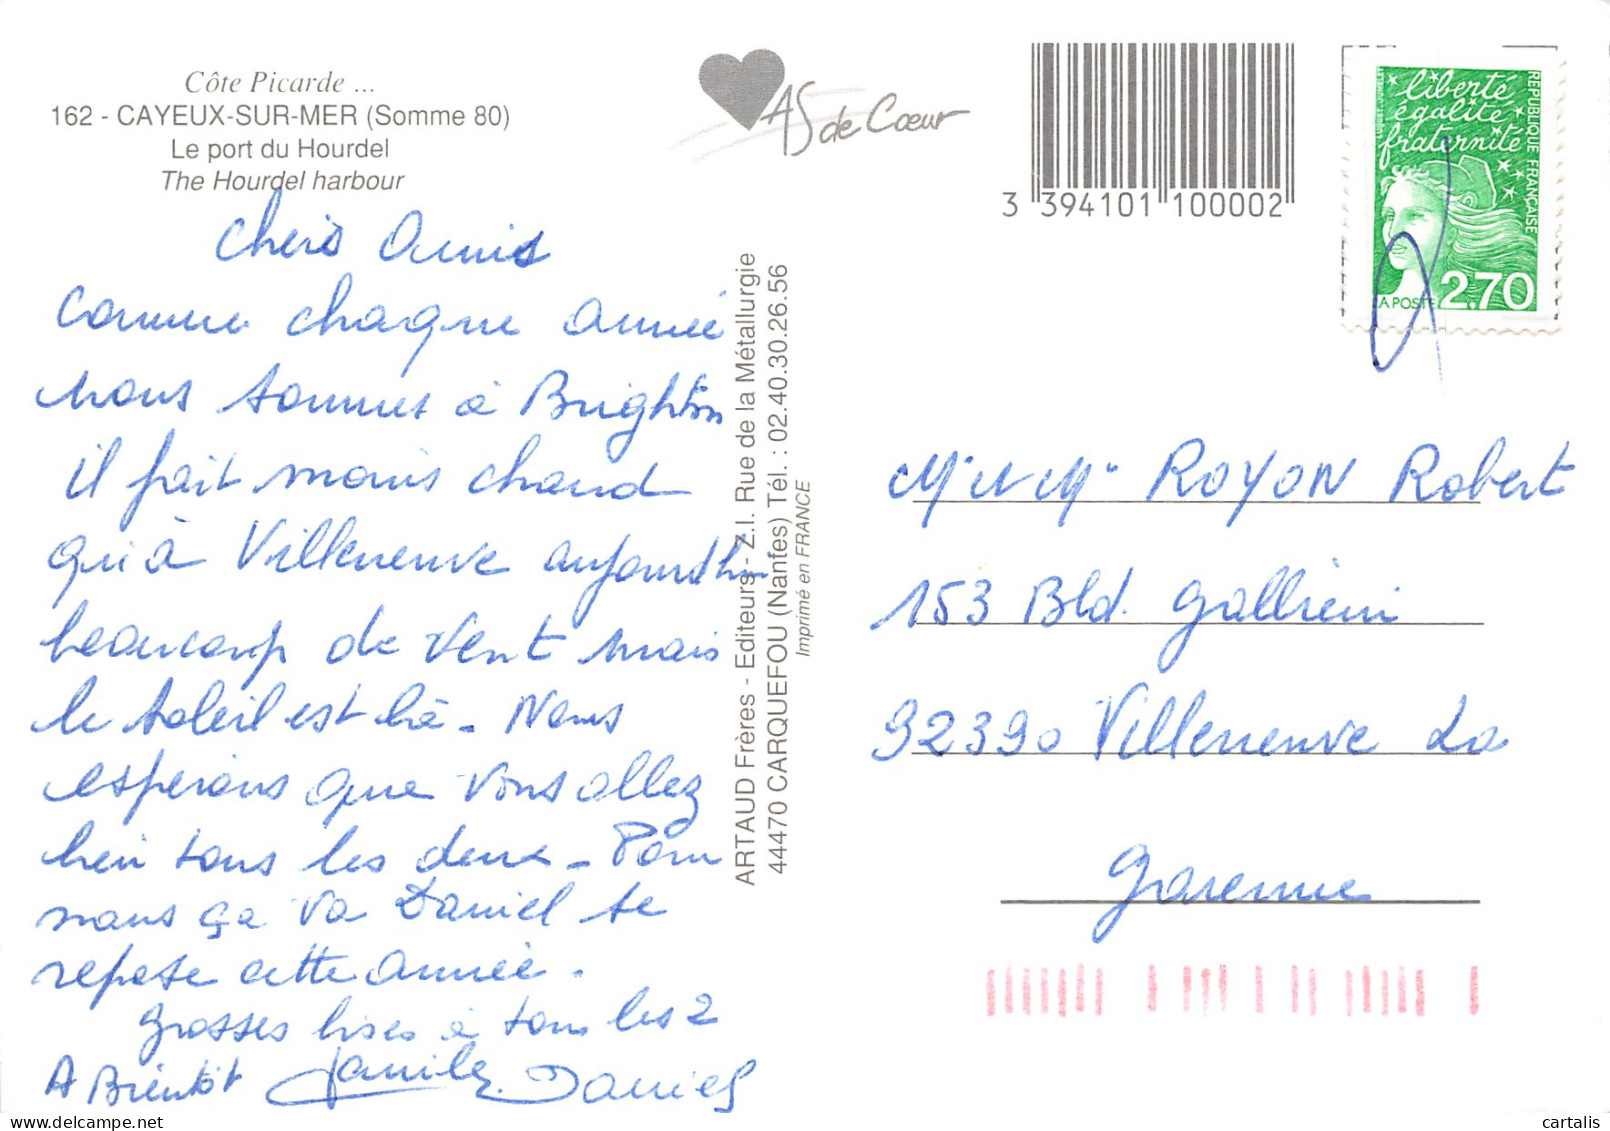 Côte Picarde ...
162 - CAYEUX-SUR-MER (Somme 80)
Le port du Hourdel
The Hourdel harbour
Chers Amis
Comme chaque année
nous sommes à Brighton
il fait moins chaud
qu'à Villeneuve aujourd'hui
beaucoup de vent mais
le soleil est là - Nous
espérons que vous allez
bien tous les deux - Pour
nous ça va Daniel se
repose cette année.
grosses bises à tous les 2
A Bientôt Daniel
AS de Cœur
3 394101 100002
liberté
égalité
fraternité
REPUBLIQUE FRANÇAISE
LA POSTE 2,70
ARTAUD Frères - Editeurs - Z.I. Rue de la Métallurgie
44470 CARQUEFOU (Nantes) Tél. : 02.40.30.26.56
Imprimé en FRANCE
Mr et Me ROYON Robert
153 Bld. Galliéni
92390 Villeneuve La
Garenne
www.delcampe.net
cartalis